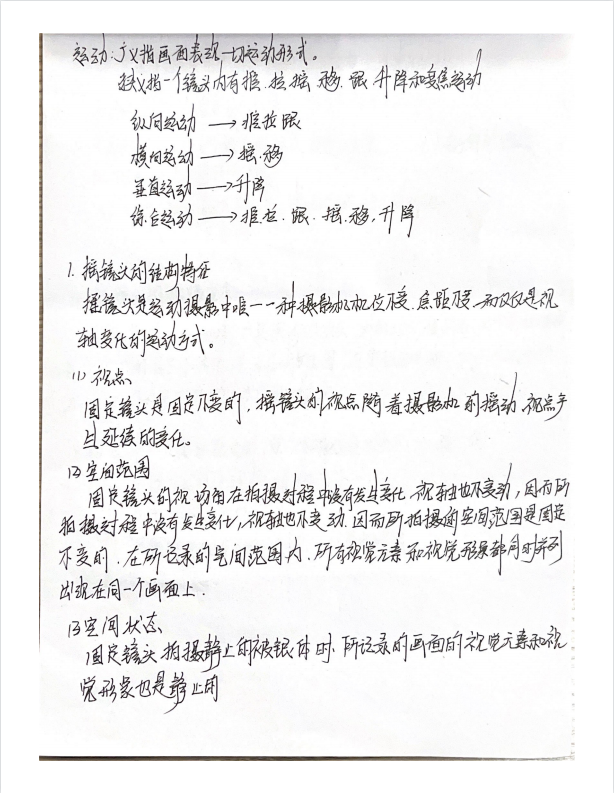 运动:广义指画面表现一切运动形式。
狭义指一个镜头内有推.拉.摇.移.跟.升降和变焦运动
纵向运动 → 推拉跟
横向运动 → 摇.移
垂直运动 → 升降
综合运动 → 推.拉.跟.摇.移,升降
1.摇镜头的结构特征
摇镜头是运动摄影中唯一一种摄影机机位不变.焦距不变.而仅仅是视
轴变化的运动方式。
(1)视点
固定镜头是固定不变的,摇镜头的视点随着摄影机的摇动,视点产
生延续的变化。
(2)空间范围
固定镜头的视场角在拍摄过程中没有发生变化.视轴也不变动,因而所
拍摄过程中没有发生变化,视轴也不变动.因而所拍摄的空间范围是固定
不变的.在所记录的空间范围内.所有视觉元素和视觉形象都同时并列
出现在同一个画面上.
(3)空间状态
固定镜头拍摄静止的被摄体时.所记录的画面的视觉元素和视
觉形象也是静止的